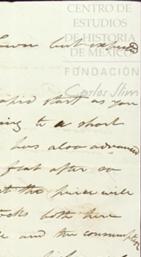 CENTRO DE
ESTUDIOS
DE HISTORIA
DE MÉXICO
FUNDACIÓN
Carlos Slim
rapid start as you
ing to a short
has also advanced
feat after so
the price will
stocks both here
and the consumption